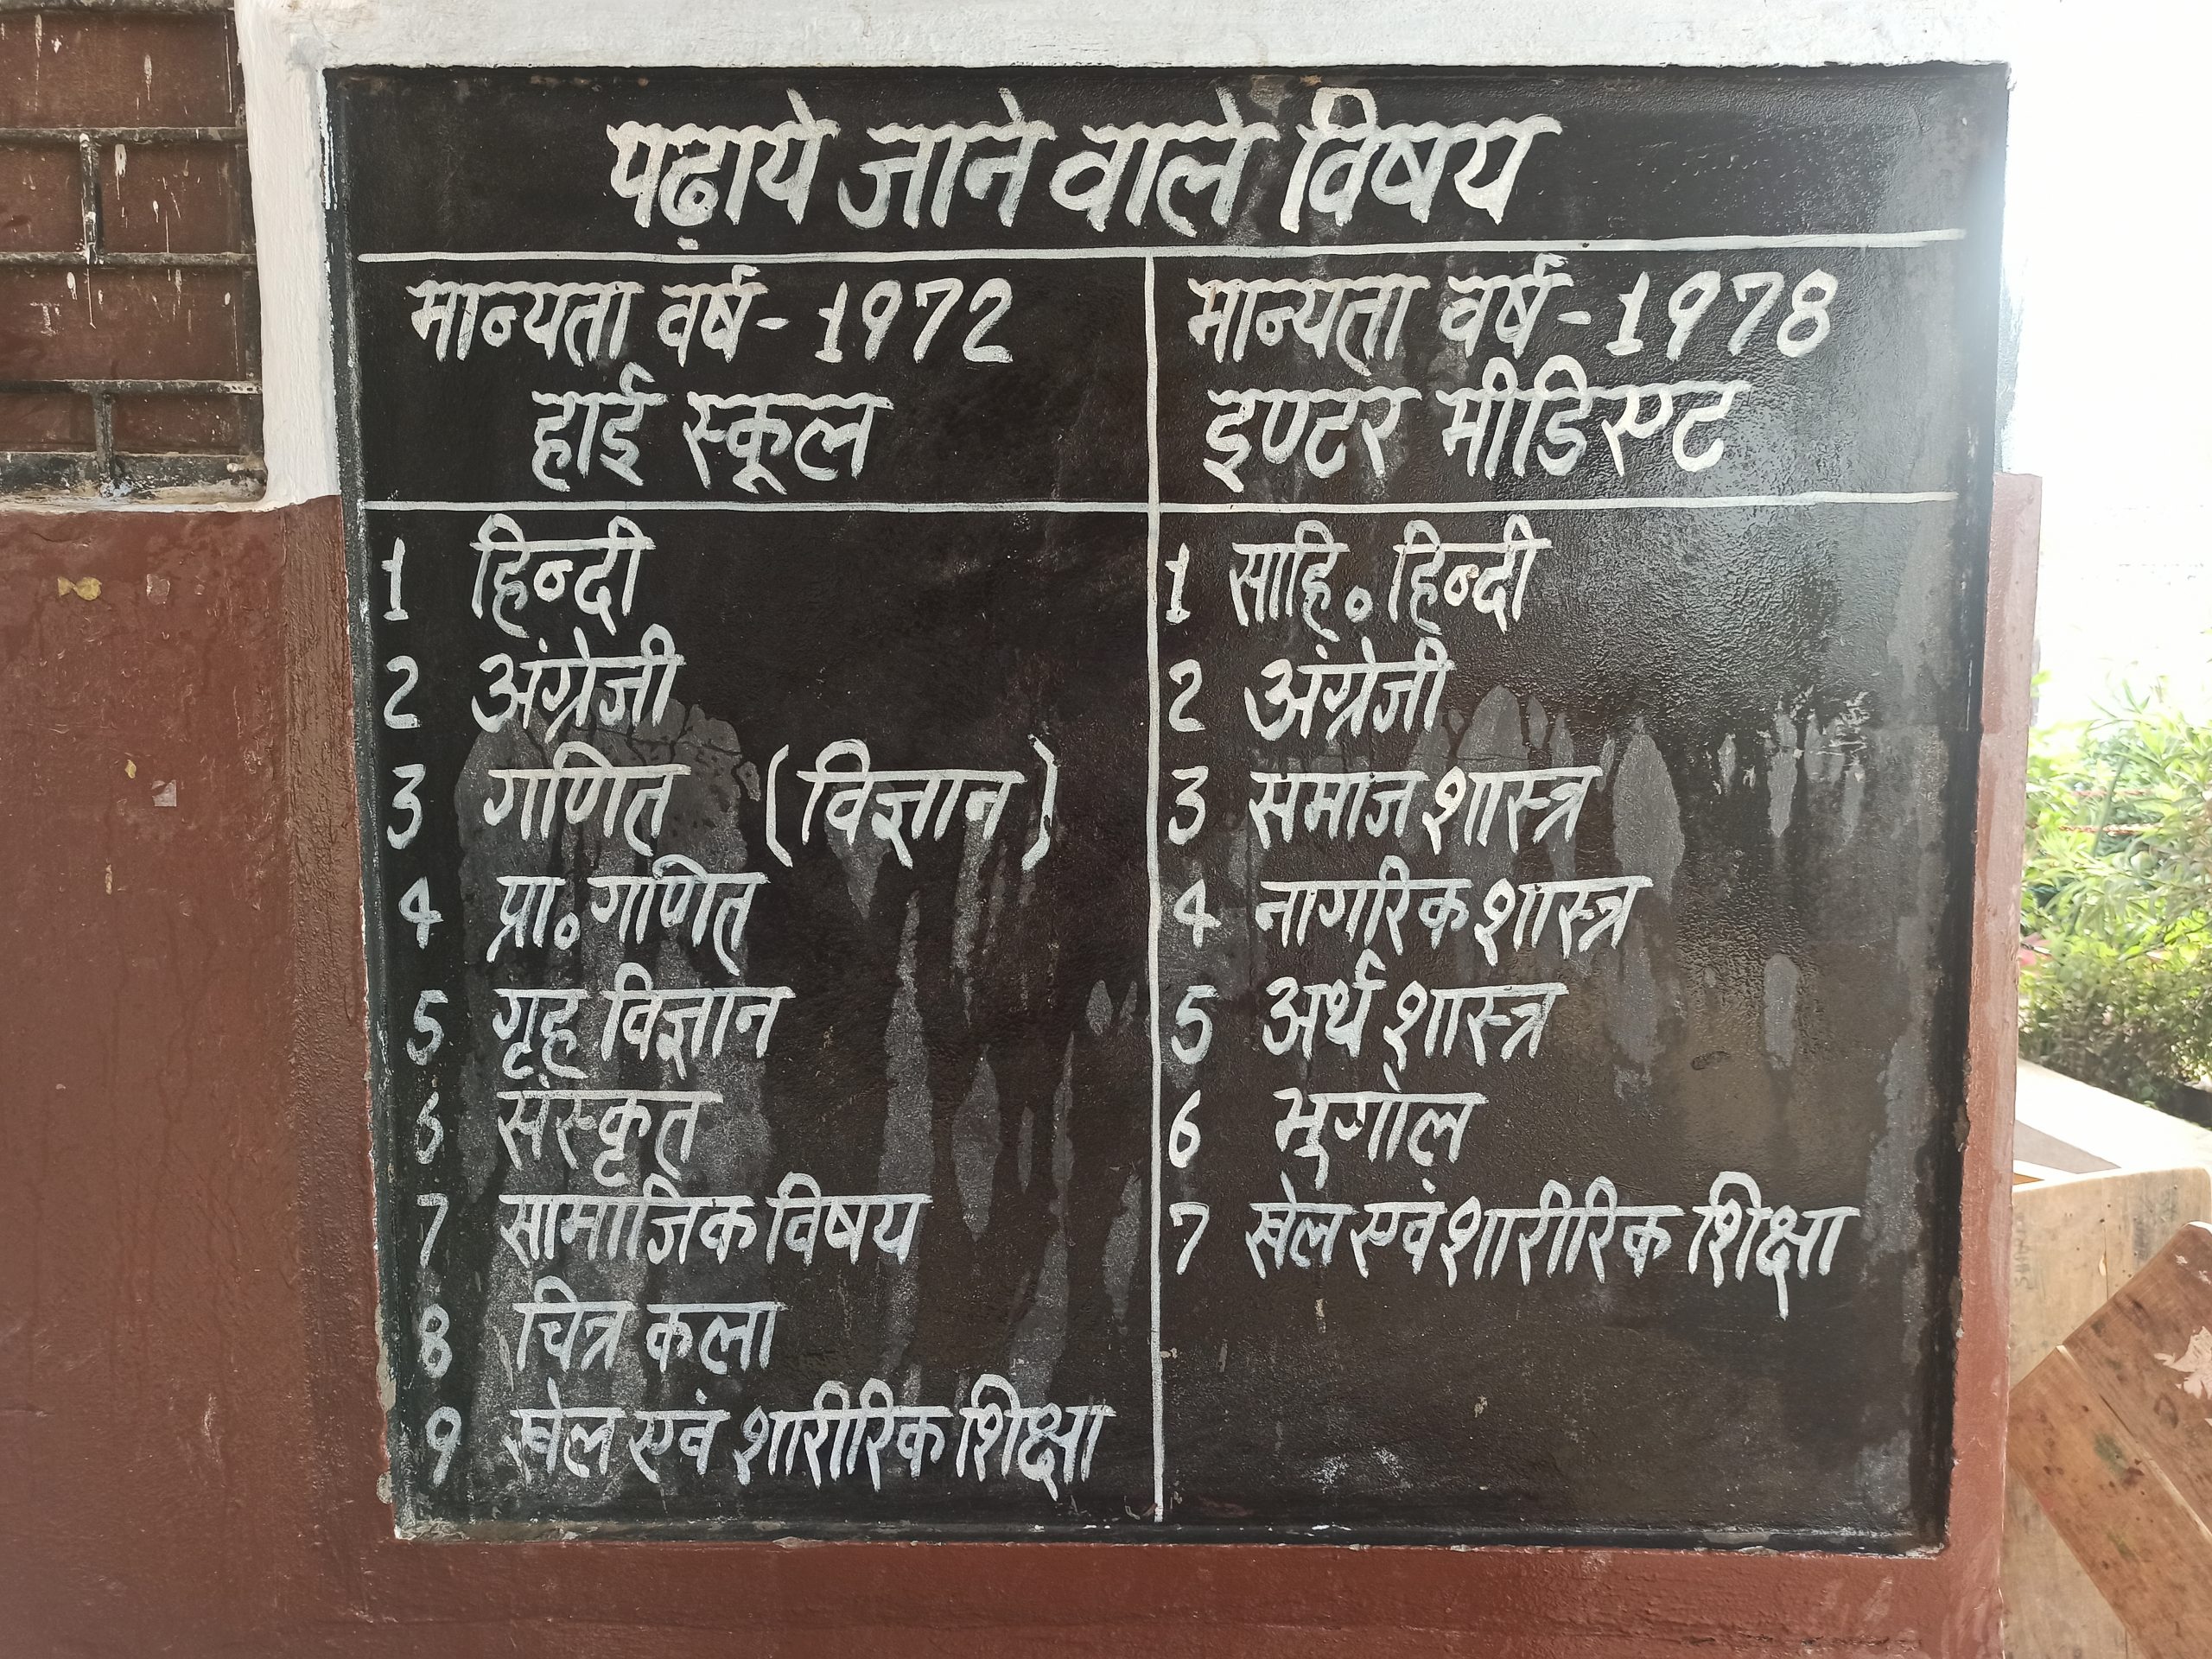 पढ़ाये जाने वाले विषय
मान्यता वर्ष - 1972
हाई स्कूल
1 हिन्दी
2 अंग्रेजी
3 गणित (विज्ञान)
4 प्रा॰ गणित
5 गृह विज्ञान
6 संस्कृत
7 सामाजिक विषय
8 चित्र कला
9 खेल एवं शारीरिक शिक्षा
मान्यता वर्ष - 1978
इण्टर मीडिएट
1 साहि॰ हिन्दी
2 अंग्रेजी
3 समाज शास्त्र
4 नागरिक शास्त्र
5 अर्थ शास्त्र
6 भूगोल
7 खेल एवं शारीरिक शिक्षा